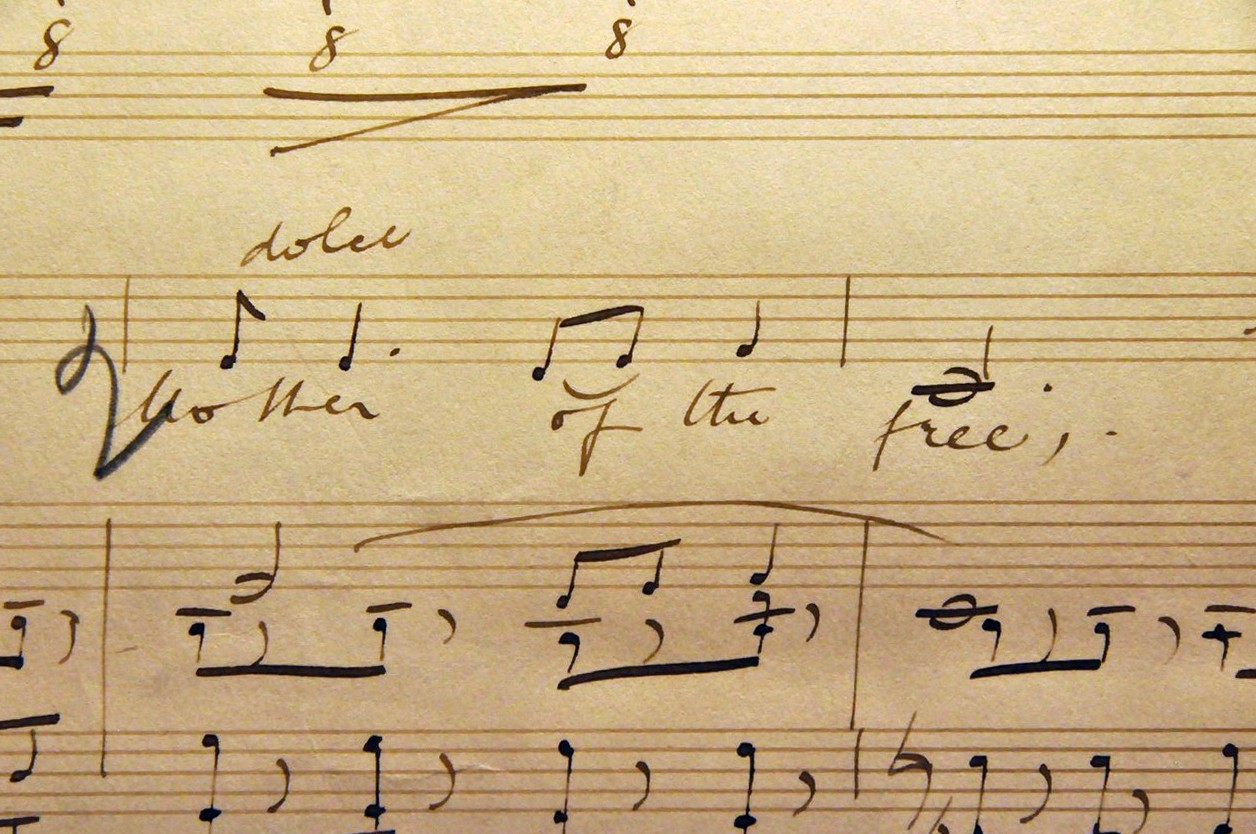 8 8 8
dolce
Mother of the free;.